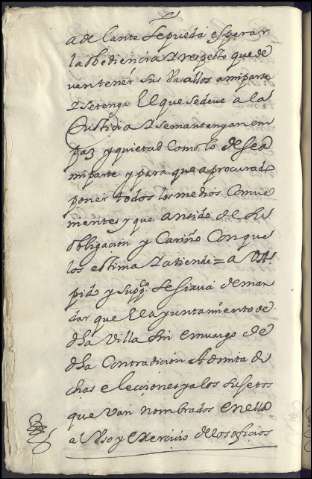 adelante se pueda esperar
la obediencia y respeto que de
van tener sus Vasallos a mi parte
y se tenga el que se deve a la
Justicia y se mantengan en
paz y quietud como lo desea
mi parte y para que a procurado
poner todos los medios combe
nientes y que an sido de su
obligacion y Cariño con que
los estima y atiende = a V. A.
pido y supp.co se sirva de man
dar que el ayuntamiento de
dha Villa sin embargo de
dha Contradicion Admita di
chas elecciones y a los sujetos
que van nombrados en ella
al Uso y exercicio de los oficios